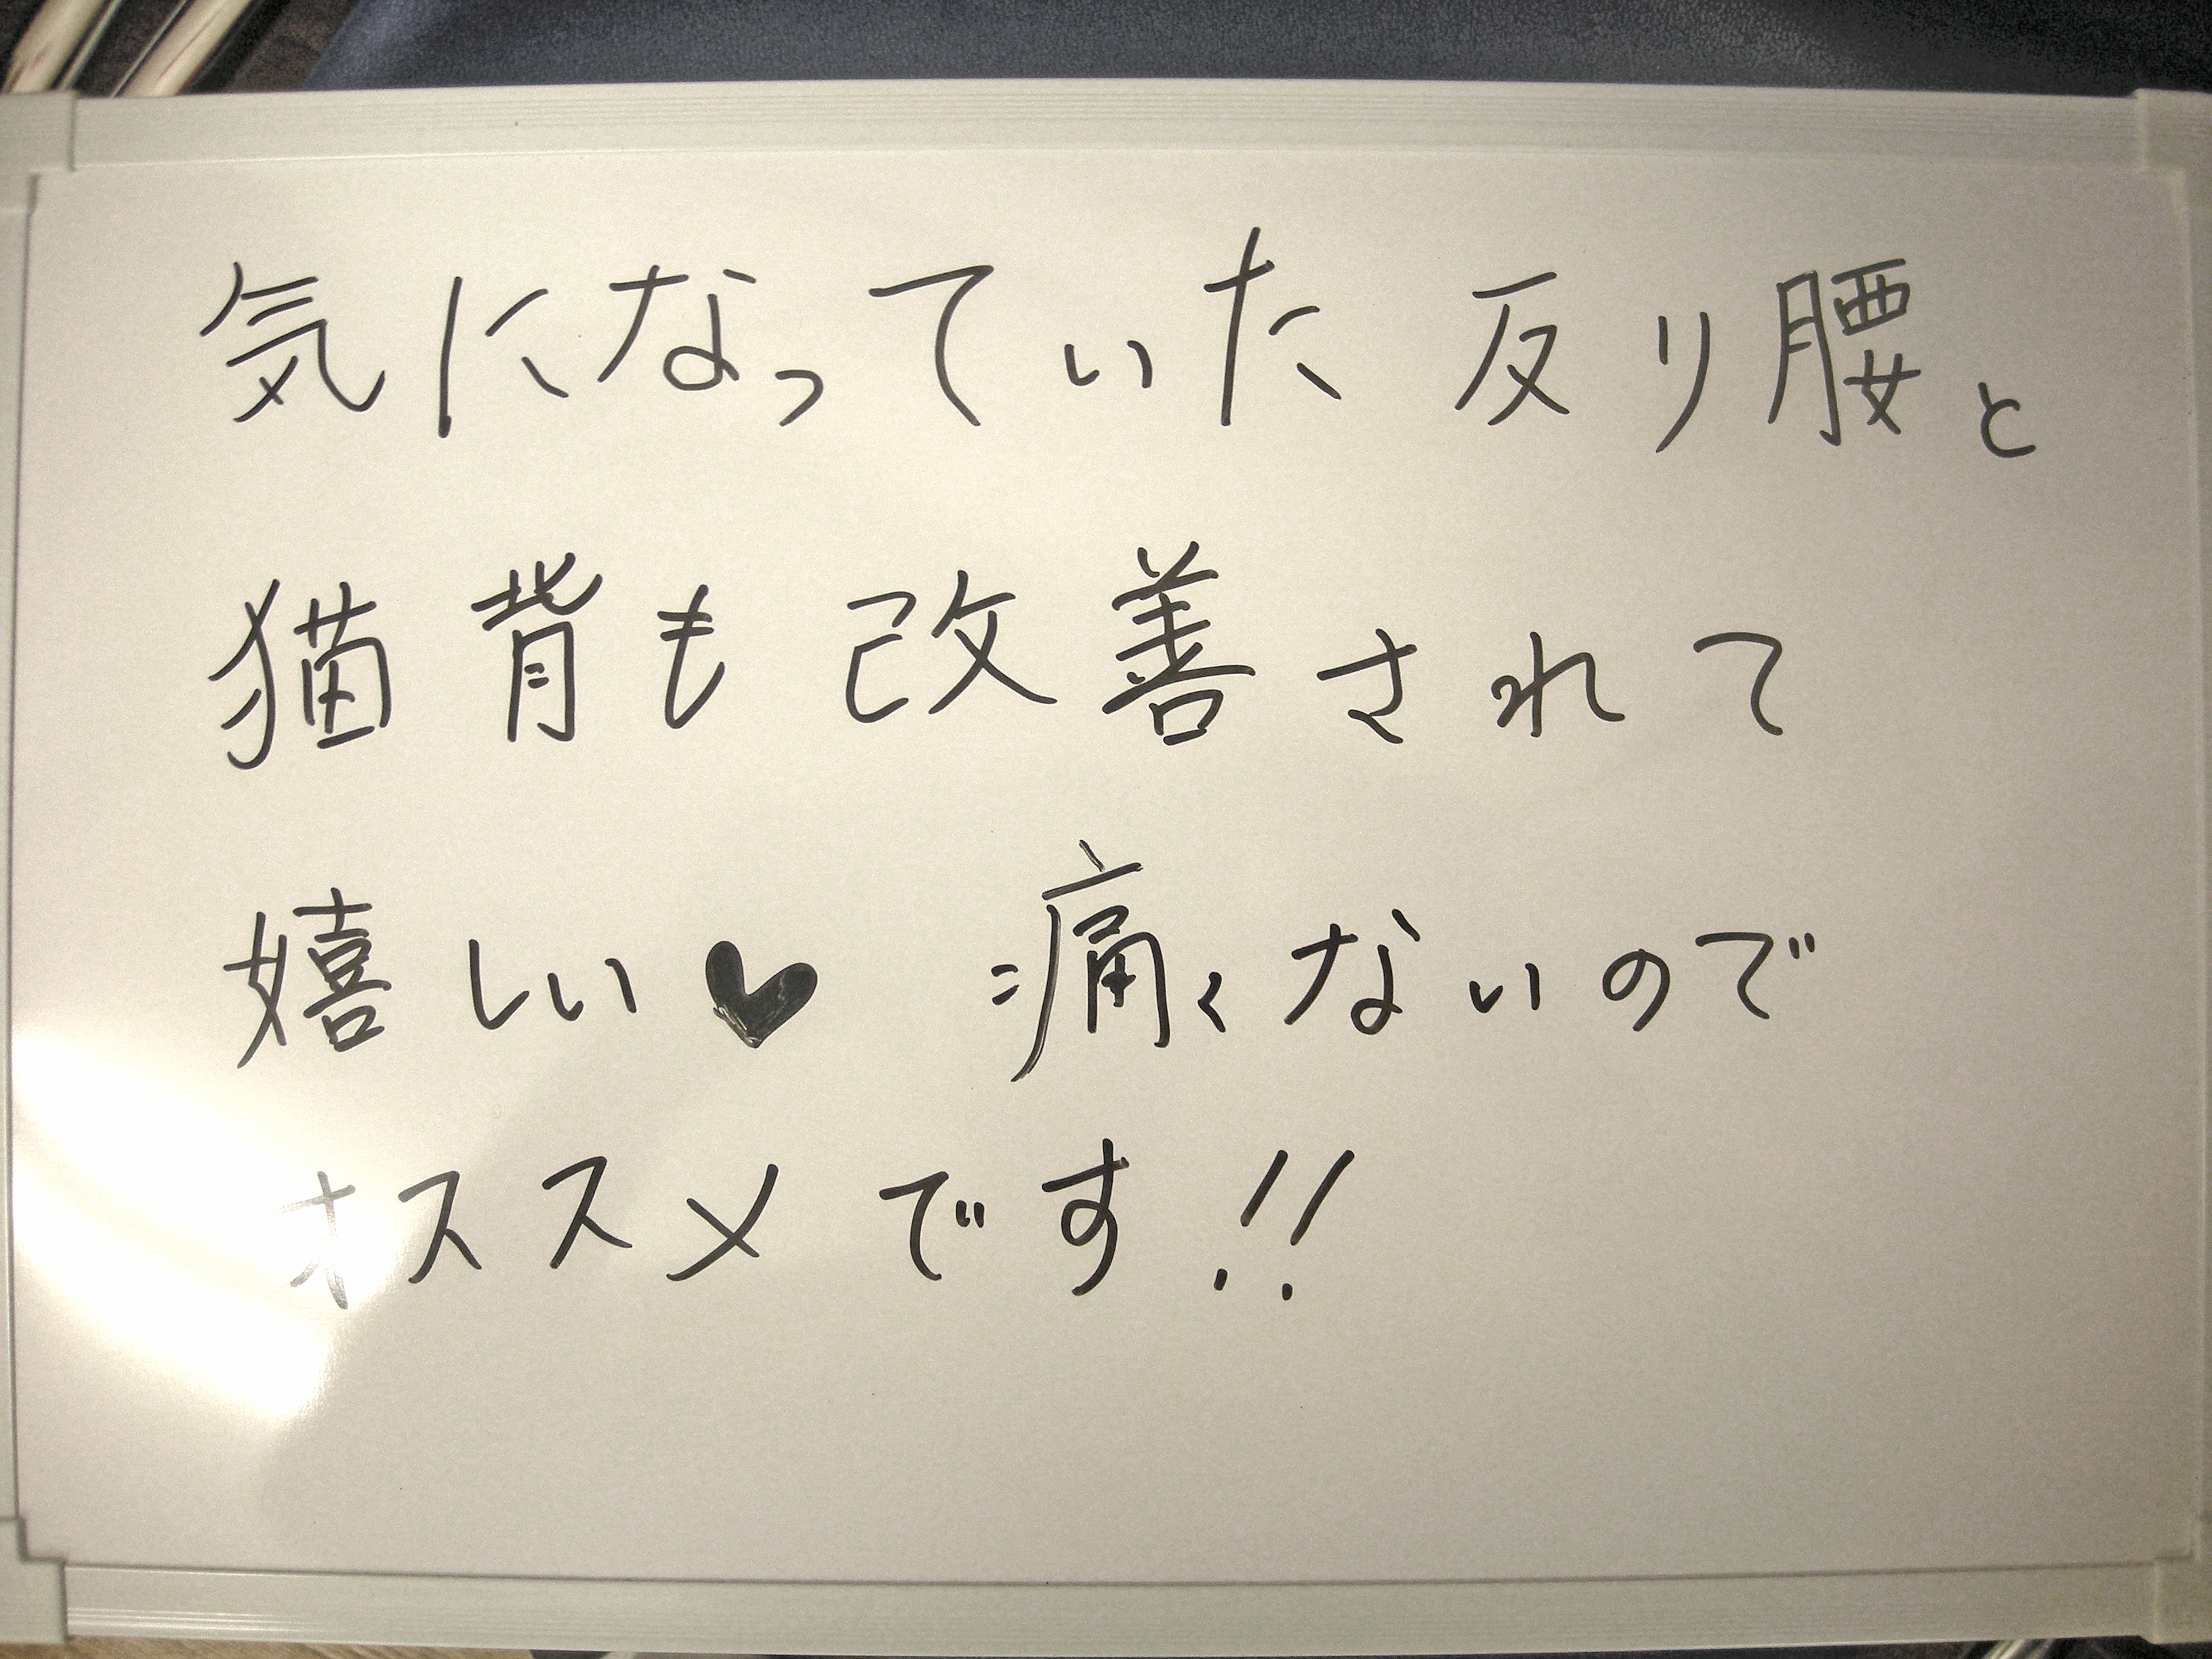 気になっていた反り腰と
猫背も改善されて
嬉しい♥ 痛くないので
オススメです!!